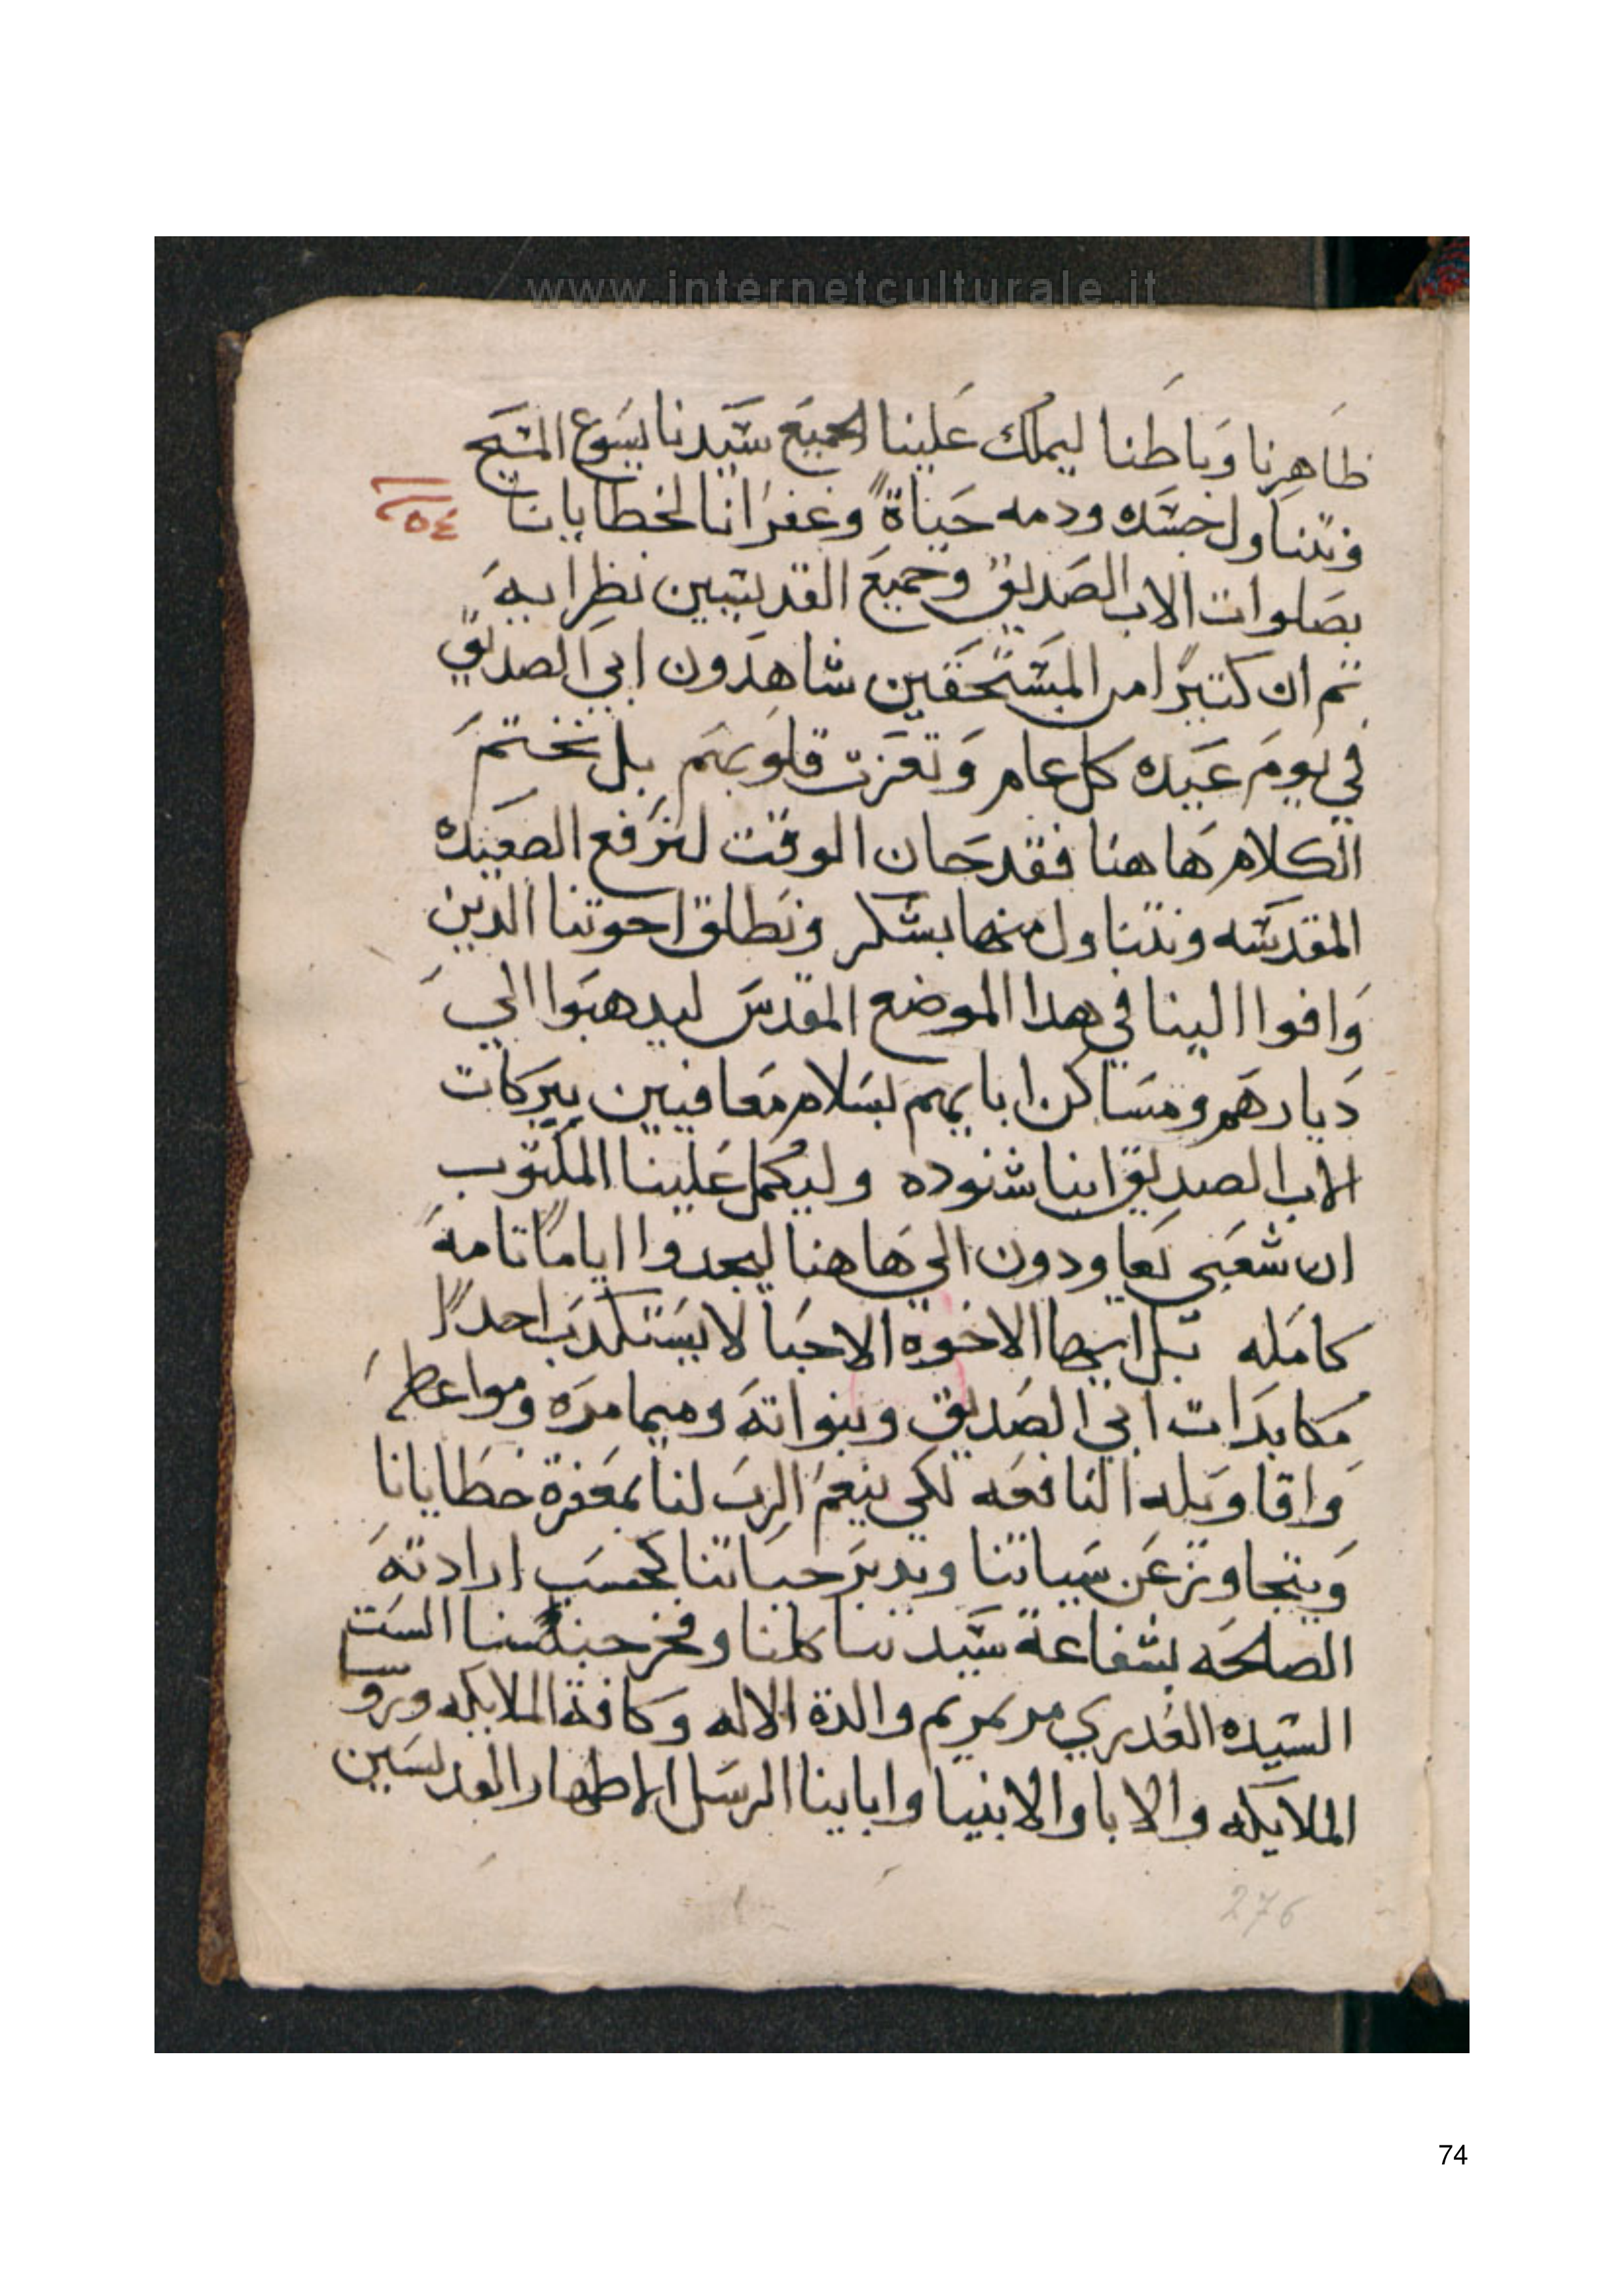 www.internetculturale.it
ظاهرنا وباطنا ليملك علينا الجميع سيدنا يسوع المسيح
ونتناول جسده ودمه حياةً وغفرانا لخطايانا
٥٤
بصلوات الاب الصديق وجميع القديسين نظرايه
تم ان كتيرًا من المستحقين شاهدون ابي الصديق
في يوم عيده كل عام وتعزت قلوبهم بل نختم
الكلام هاهنا فقد حان الوقت لنرفع الصعيده
المقدسه ونتناول منها بشكر ونطلق اخوتنا الدين
وافوا الينا في هدا الموضع المقدس ليدهبوا الي
ديارهم ومساكن ابايهم بسلام معافيين ببركات
الاب الصديق انبا شنوده وليكمل علينا المكتوب
ان شعبي يعاودون الي هاهنا ليجدوا ايامًا تامة
كامله بل ايها الاخوه الاحبا لا يستكدب احدًا
مكابدات ابي الصديق وبنواته وميامره ومواعظه
واقاويله النافعه لكي ينعم الرب لنا بمغفرة خطايانا
ويتجاوز عن سياتنا ويدبر حياتنا كحسب ارادته
الصالحه بشفاعة سيدتنا كلنا وفخر جنسنا الست
السيده العدري مرتمريم والدة الاله وكافة الملايكه وروسا
الملايكه والابا والانبيا وابابنا الرسل الاطهار والقديسين
276
74